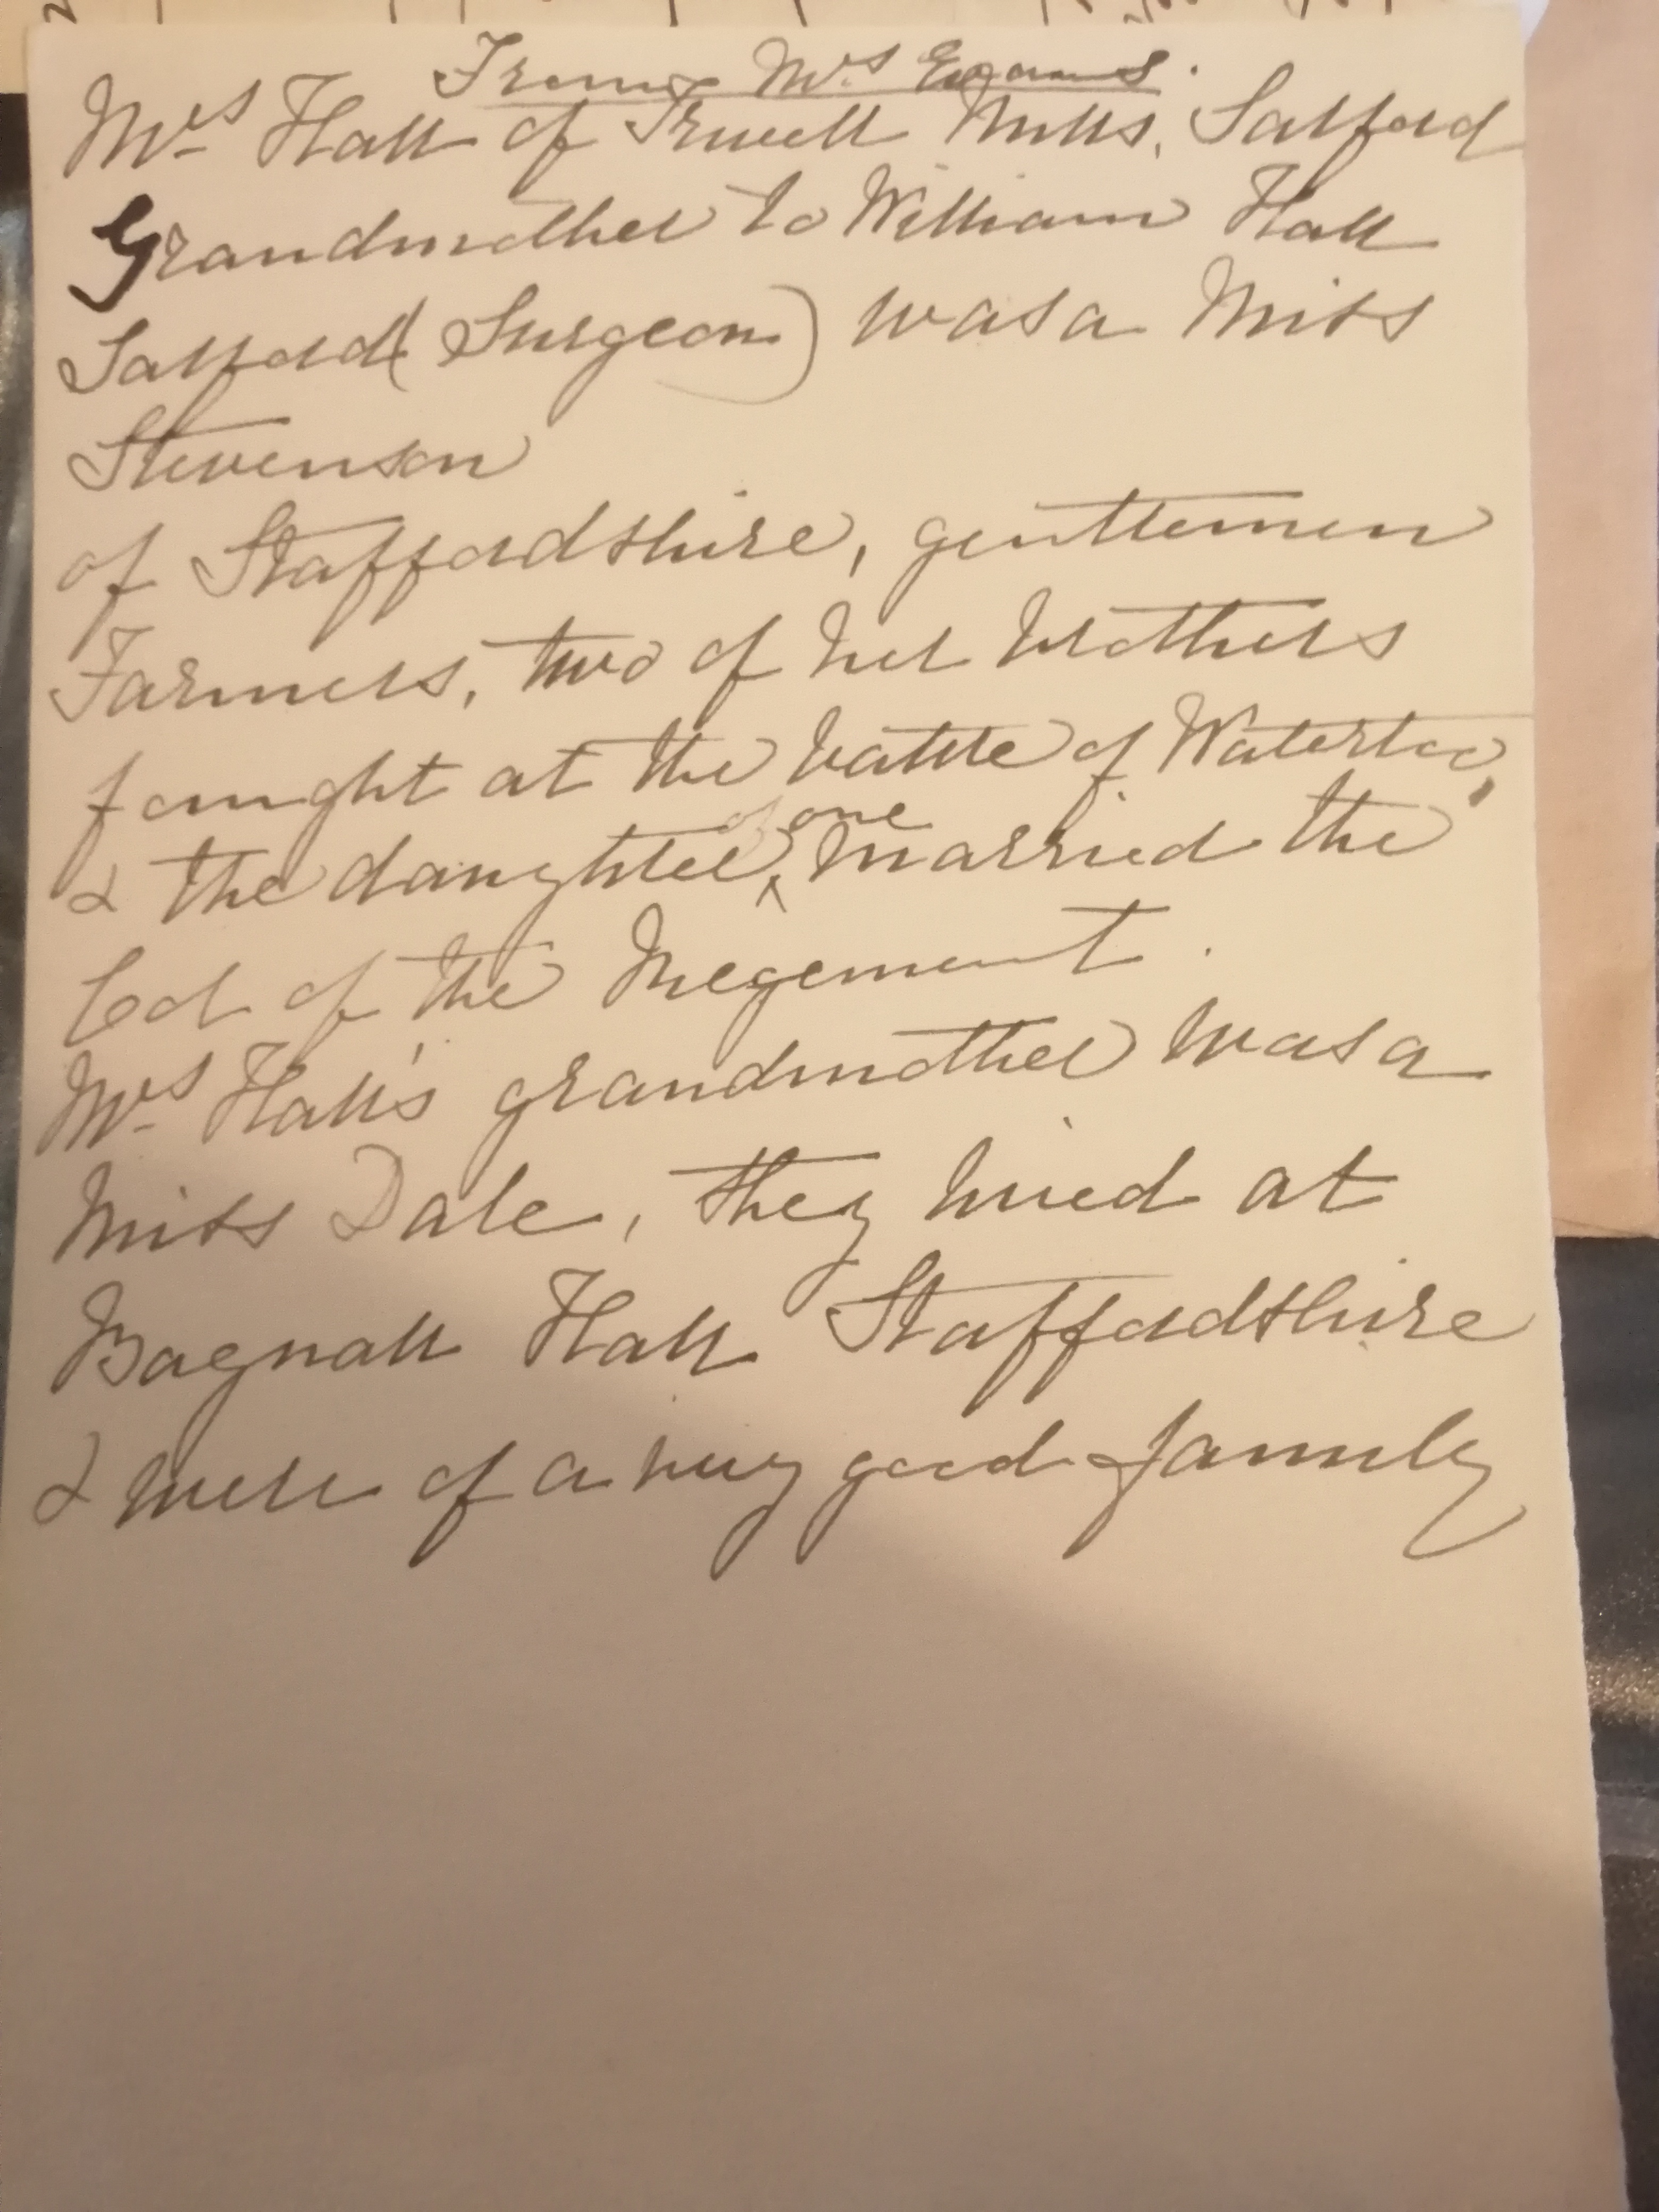 From Mrs Evans.
Mrs Hall of Irwell Mills, Salford
Grandmother to William Hall
Salford (Surgeon) was a Miss
Stevenson
of Staffordshire, gentlemen
Farmers, two of her brothers
fought at the battle of Waterloo,
of one
& the daughter ^ married the
Col of the Regement.
Mrs Hall's grandmother was a
Miss Dale, they lived at
Bagnall Hall Staffordshire
& were of a very good family